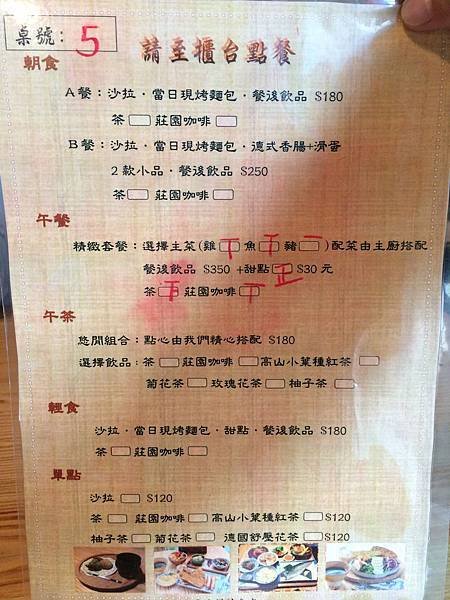 桌號： 5
請至櫃台點餐
朝食
A餐：沙拉．當日現烤麵包．餐後飲品 $180
茶 莊園咖啡
B餐：沙拉．當日現烤麵包．德式香腸+滑蛋
2款小品．餐後飲品 $250
茶 莊園咖啡
午餐
精緻套餐：選擇主菜(雞 魚 豬 )配菜由主廚搭配
餐後飲品 $350 +甜點 正 $30元
茶 莊園咖啡
午茶
悠閒組合：點心由我們精心搭配 $180
選擇飲品：茶 莊園咖啡 高山小葉種紅茶
菊花茶 玫瑰花茶 柚子茶
輕食
沙拉．當日現烤麵包．甜點．餐後飲品 $180
茶 莊園咖啡
單點
沙拉 $120
茶 莊園咖啡 高山小葉種紅茶 $120
柚子茶 菊花茶 德國舒壓花茶 $120